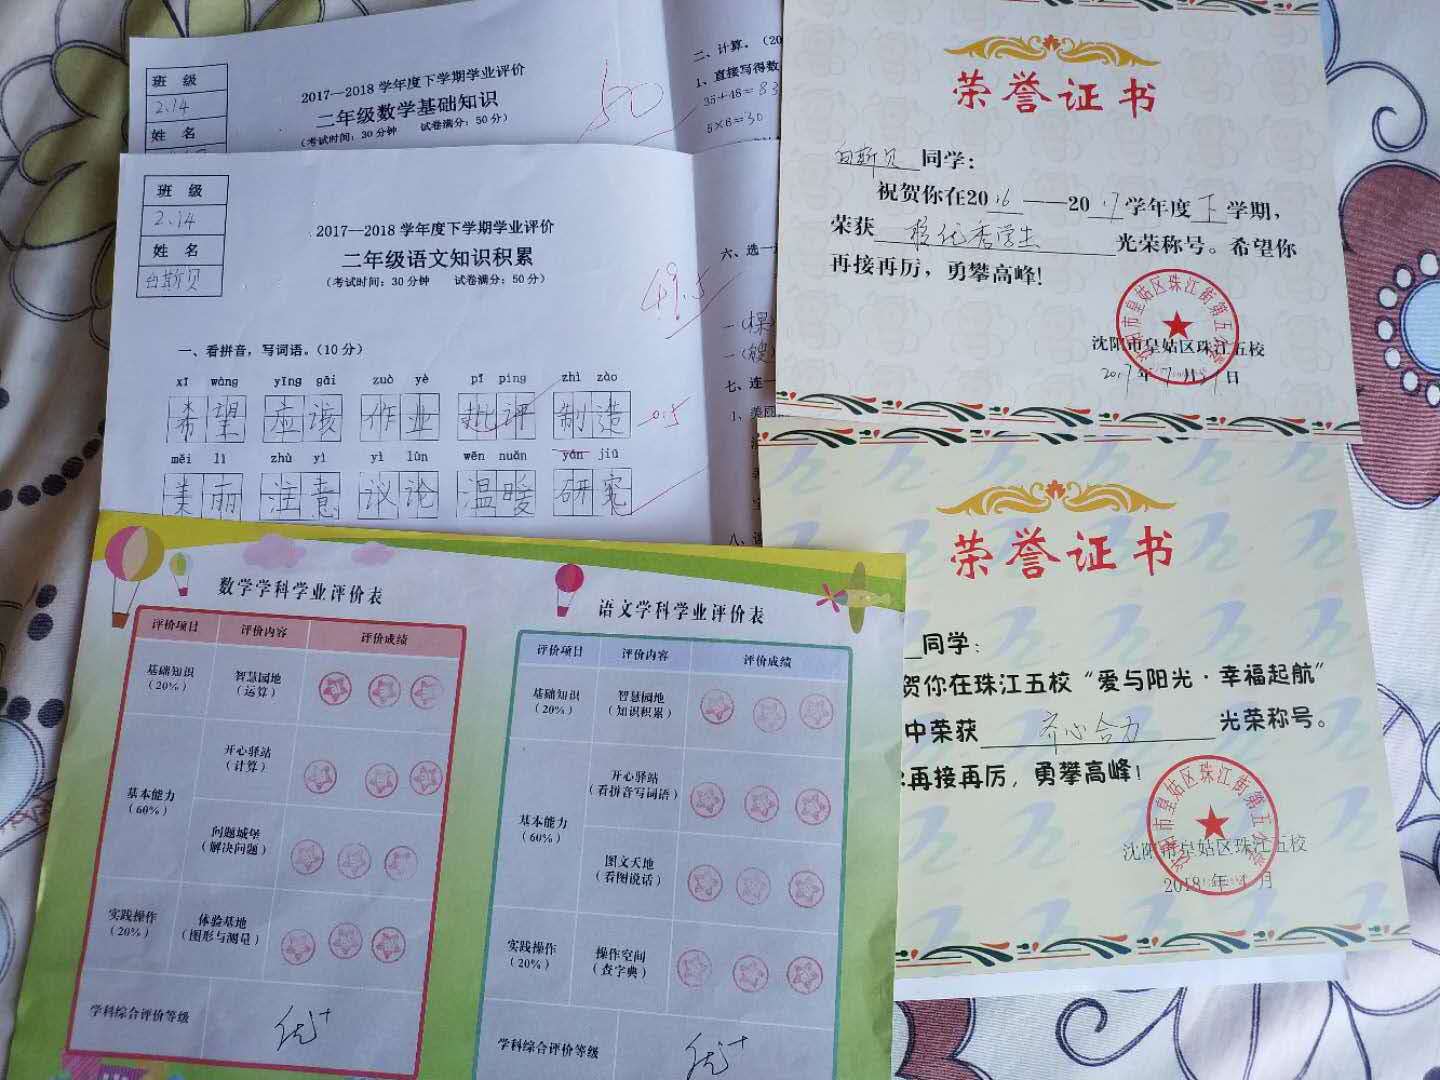 班 级
2.14
姓 名
2017—2018 学年度下学期学业评价
二年级数学基础知识
(考试时间：30分钟 试卷满分：50分)
50
二、计算。(20
1、直接写得数
35+48=83
5×6=30
班 级
2.14
姓 名
白斯贝
2017—2018 学年度下学期学业评价
二年级语文知识积累
(考试时间：30分钟 试卷满分：50分)
49.5
一、看拼音，写词语。(10分)
xī wàng yīng gāi zuò yè pī píng zhì zào
希望 应该 作业 批评 制造
-0.5
měi lì zhù yì yì lùn wēn nuǎn yán jiū
美丽 注意 议论 温暖 研究
六、选一
一(棵)
一(艘)
七、连一
1、美丽
八、
荣誉证书
白斯贝 同学：
祝贺你在2016——2017学年度下学期，
荣获 校优秀学生 光荣称号。希望你
再接再厉，勇攀高峰！
沈阳市皇姑区珠江街第五小学
沈阳市皇姑区珠江五校
2017年7月 日
荣誉证书
同学：
贺你在珠江五校“爱与阳光·幸福起航”
中荣获 齐心合力 光荣称号。
再接再厉，勇攀高峰！
沈阳市皇姑区珠江街第五小学
沈阳市皇姑区珠江五校
2018年 月
数学学科学业评价表
评价项目 评价内容 评价成绩
基础知识 智慧园地
(20%) (运算)
开心驿站
(计算)
基本能力
(60%)
问题城堡
(解决问题)
实践操作 体验基地
(20%) (图形与测量)
学科综合评价等级 优+
语文学科学业评价表
评价项目 评价内容 评价成绩
基础知识 智慧园地
(20%) (知识积累)
开心驿站
(看拼音写词语)
基本能力
(60%)
图文天地
(看图说话)
实践操作 操作空间
(20%) (查字典)
学科综合评价等级 优+